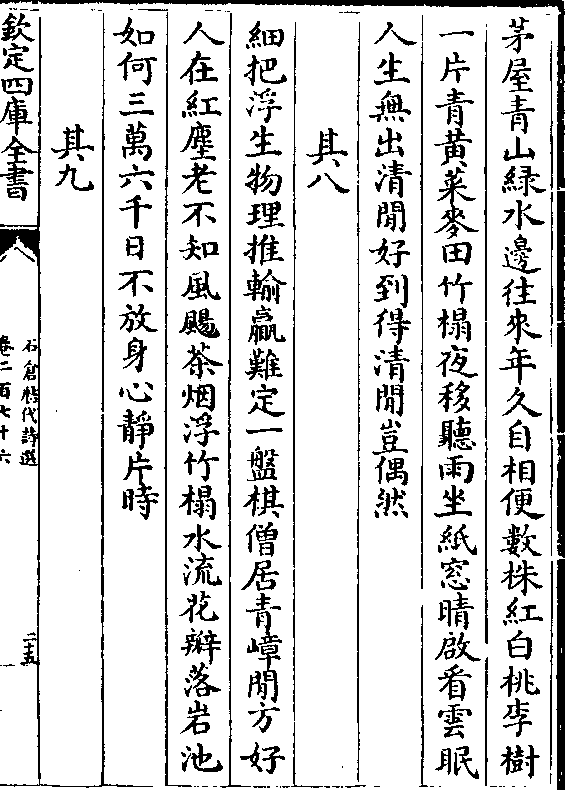 茅屋青山緑水邊往來年久自相便數株紅白桃李樹
一片青黄菜麥田竹榻夜移聽雨坐紙窓晴啟看雲眠
人生無出清閒好到得清閒豈偶然
其八
細把浮生物理推輸贏難定一盤棋僧居青嶂閒方好
人在紅塵老不知風颺茶烟浮竹榻水流花瓣落岩池
如何三萬六千日不放身心靜片時
其九
欽定四庫全書
石倉歷代詩選
卷二百七十六
二十五